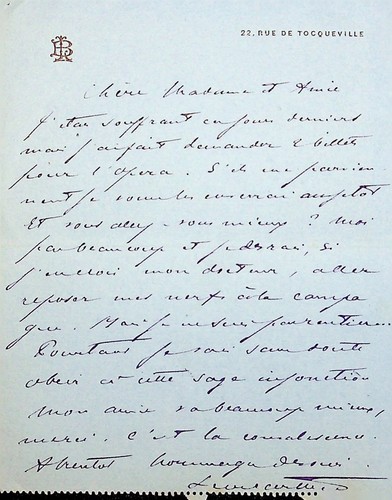 22, RUE DE TOCQUEVILLE
Chère Madame et Amie
J'étais souffrant ces jours derniers
mais j'ai fait demander 2 billets
pour l'Opéra. S'ils me parvien
nent je vous les enverrai aussitôt
Et vous allez-vous mieux ? Moi
pas beaucoup et je devrai, si
j'en crois mon docteur, aller
reposer mes nerfs à la campa
gne. Mais je ne suis pas
Pourtant je vais sans doute
obéir à cette sage injonction
Mon amie va beaucoup mieux,
merci. C'est la convalescence.
A bientôt hommages